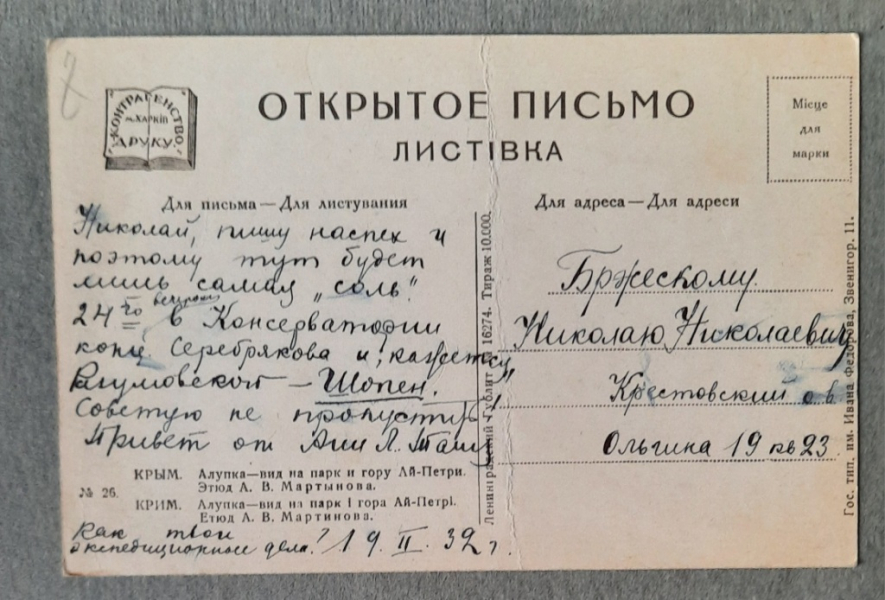 КОНТРАГЕНСТВО
м. ХАРКІВ
ДРУКУ
ОТКРЫТОЕ ПИСЬМО
ЛИСТІВКА
Місце
для
марки
Для письма — Для листування
Николай, пишу наспех и
поэтому тут будет
лишь самая „соль“.
24го вечером в Консерватории
конц. Серебрякова и, кажется,
Разумовской — Шопен.
Советую не пропустить
Привет от Ани Л. Тани
КРЫМ. Алупка—вид на парк и гору Ай-Петри.
Этюд А. В. Мартынова.
№ 26.
КРИМ. Алупка—вид на парк і гора Ай-Петрі.
Етюд А. В. Мартинова.
Как твои
экспедиционные дела? 19. II. 32 г.
Ленинградский Гублит № 16274. Тираж 10.000.
Для адреса — Для адреси
Бржескому
Николаю Николаевичу
Крестовский о-в
Ольгина 19 кв 23
Гос. тип. им. Ивана Федорова, Звенигор. 11.